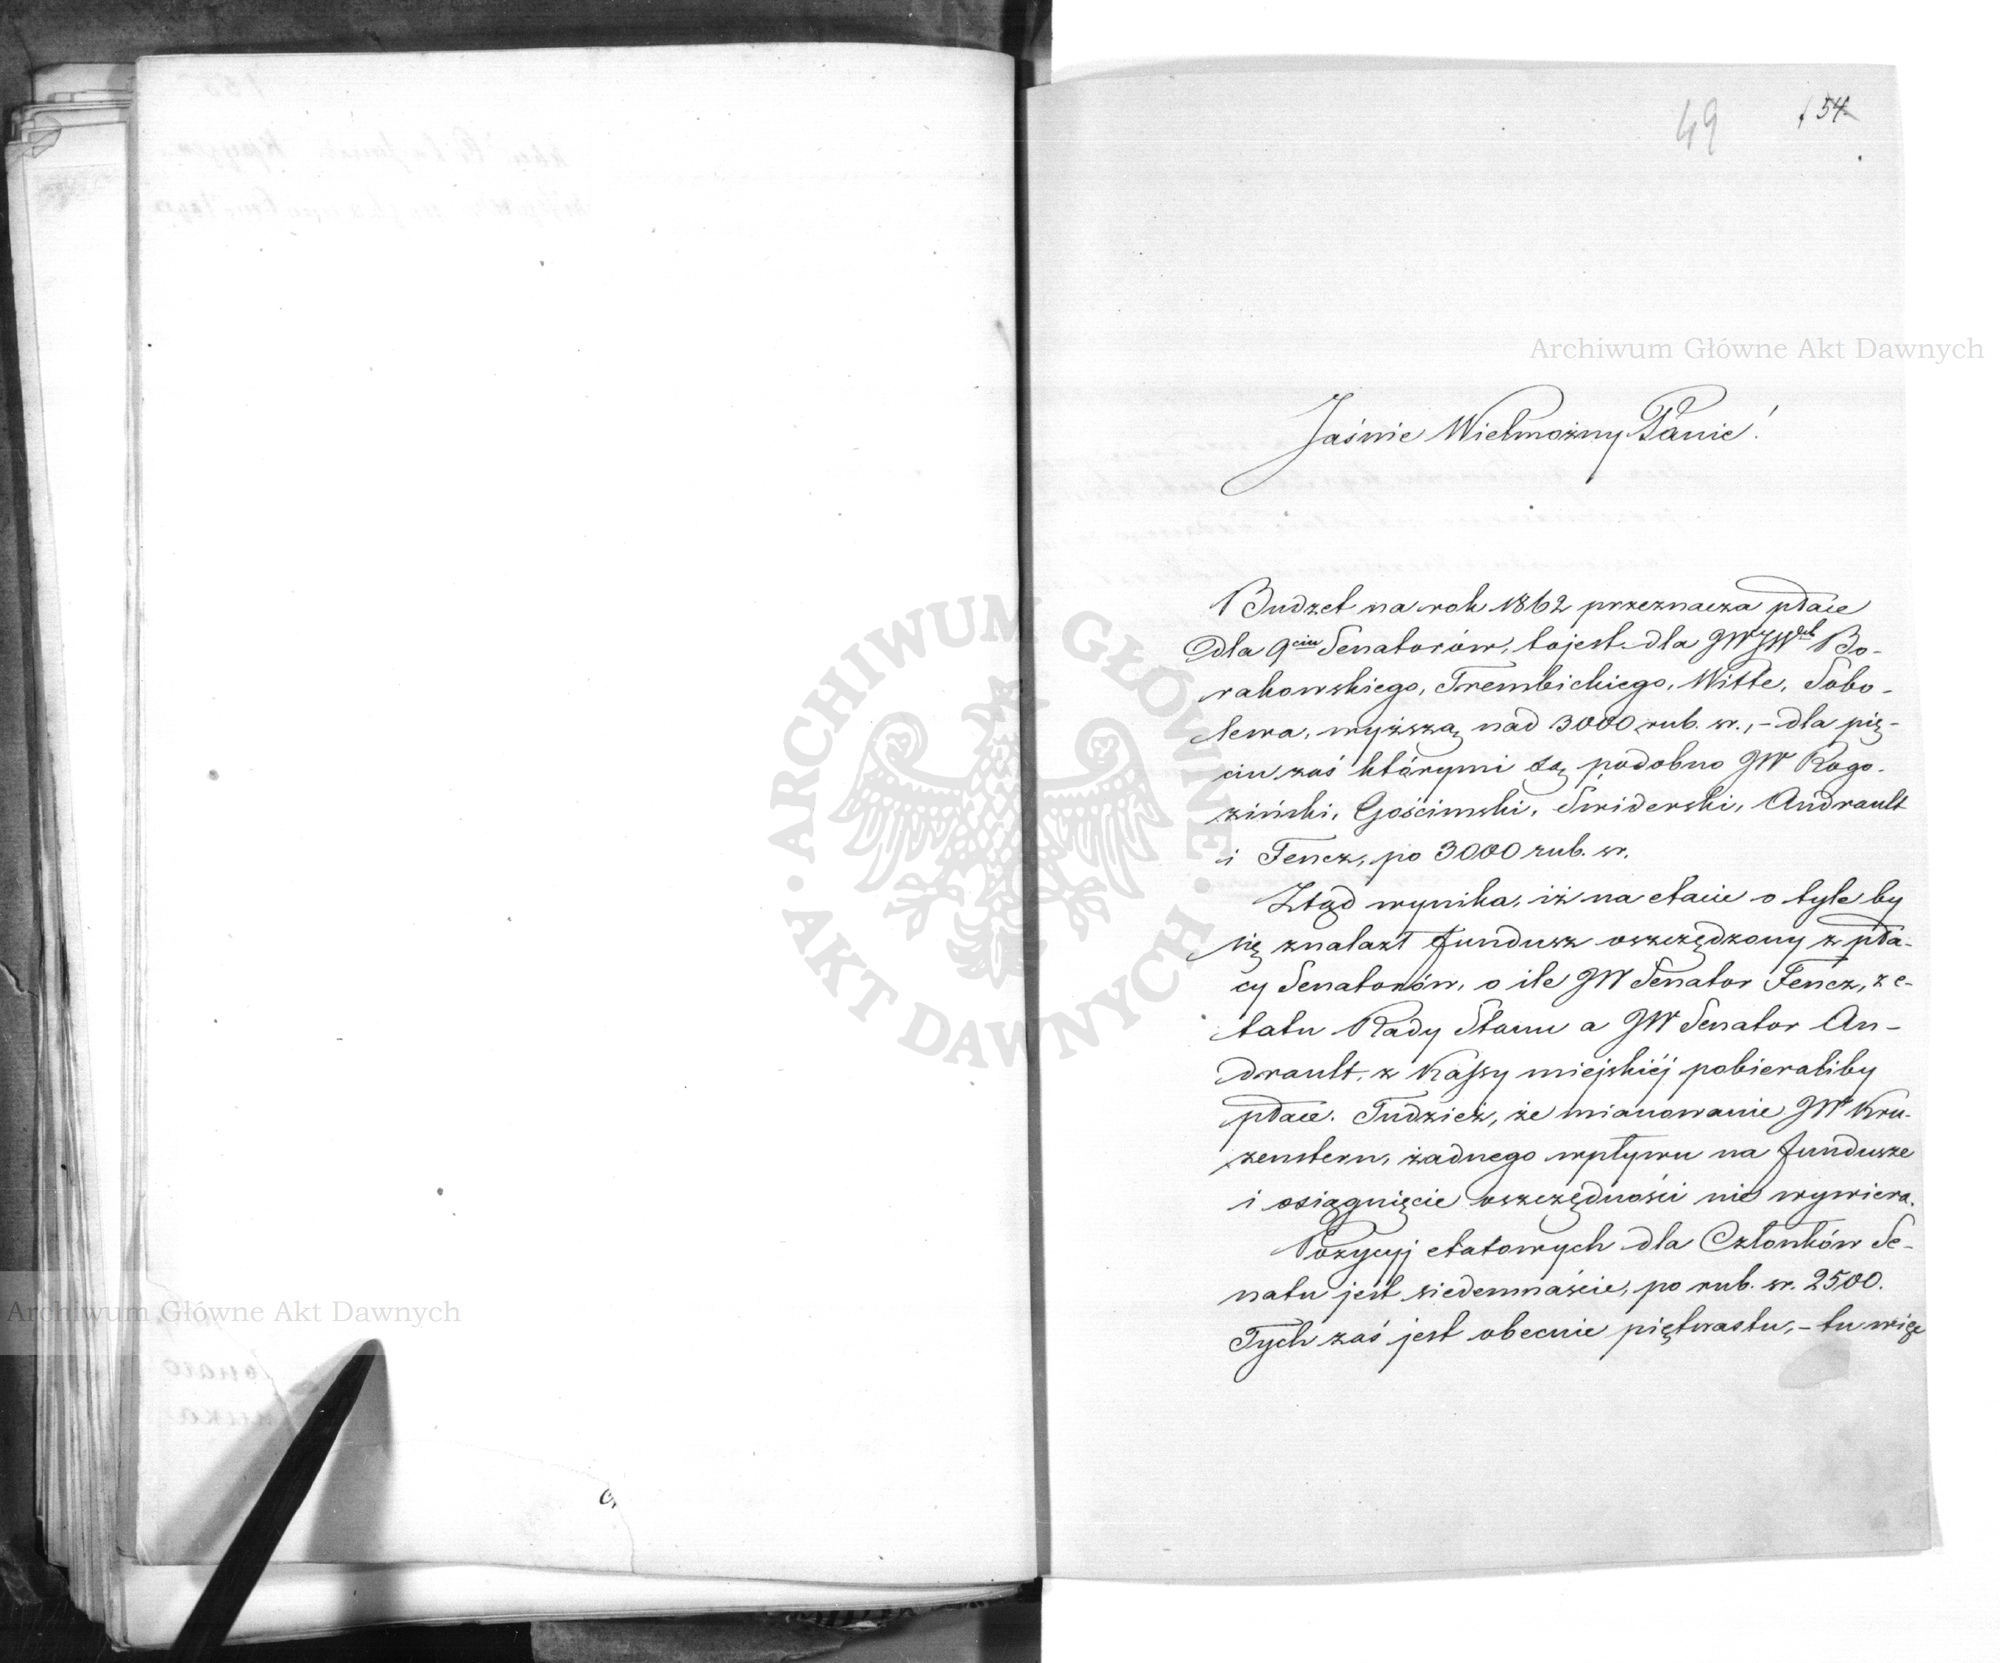 49
54
Archiwum Główne Akt Dawnych
Jaśnie Wielmożny Panie!
Budżet na rok 1862 przeznacza płacę
dla 9ciu Senatorów, to jest dla JWJWch Bo-
rakowskiego, Trembickiego, Witte, Sobo-
lewa, wyższą nad 3000 rub. sr., – dla pię-
ciu zaś którymi są podobno JW Rogo-
ziński, Gościmski, Swiderski, Andrault
i Fencz, po 3000 rub. sr.
Ztąd wynika, iż na etacie o tyle by
się znalazł fundusz oszczędzony z pła-
cy Senatorów, o ile JW Senator Fencz, z e-
tatu Rady Stanu a JW Senator An-
drault, z Kassy miejskiéj pobieraliby
płace. Tudzież, że mianowanie JW Kru-
zenstern, żadnego wpływu na fundusze
i osiągnięcie oszczędności nie wywiera.
Pozycyj etatowych dla Członków Se-
natu jest siedemnaście, po rub. sr. 2500.
Tych zaś jest obecnie piętnastu, – tu więc
ARCHIWUM GŁÓWNE AKT DAWNYCH
Archiwum Główne Akt Dawnych